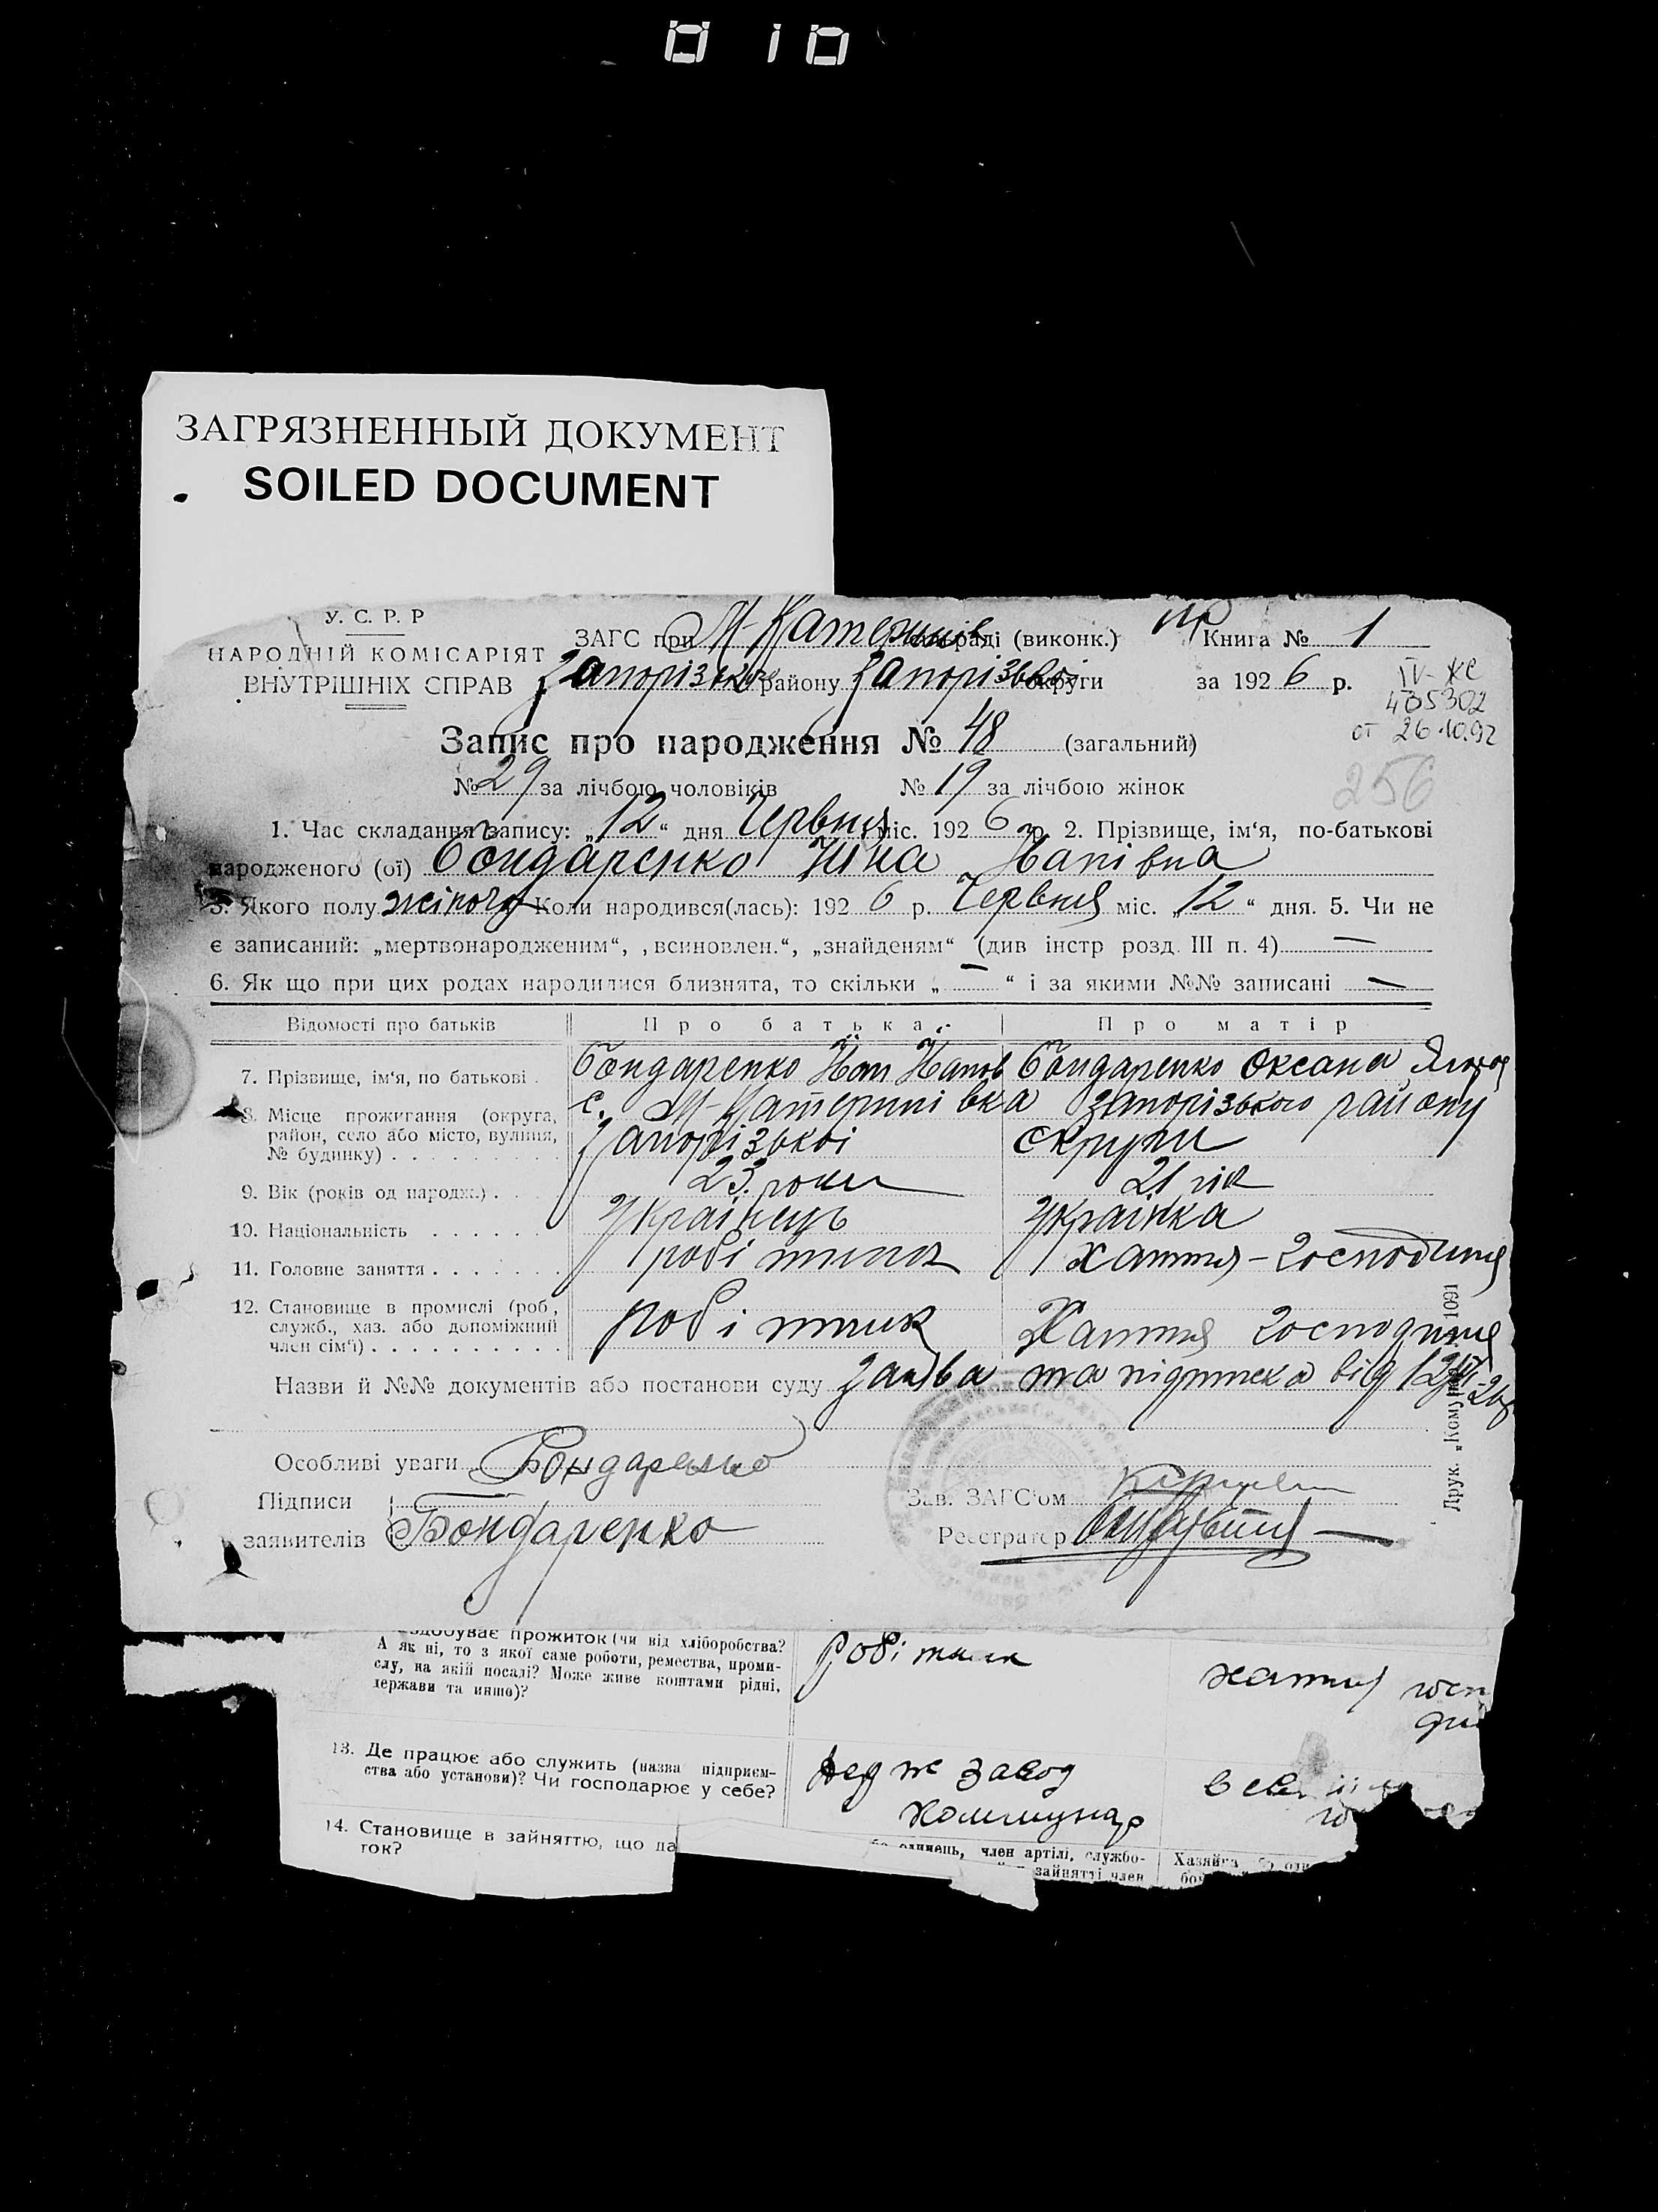 010
ЗАГРЯЗНЕННЫЙ ДОКУМЕНТ
SOILED DOCUMENT
У. С. Р. Р
НАРОДНІЙ КОМІСАРІЯТ
ВНУТРІШНІХ СПРАВ
ЗАГС при М-Катеринів раді (виконк.) Книга № 1
Запорізького району Запорізької округи за 1926 р.
IV-ЖС
435302
от 26.10.92
Запис про народження № 48 (загальний)
№ 29 за лічбою чоловіків № 19 за лічбою жінок
256
1. Час складання запису: „12“ дня Червня міс. 1926 р. 2. Прізвище, ім‘я, по-батькові
народженого (ої) Бондаренко Ніна Йванівна
3. Якого полу жіночу Коли народився(лась): 1926 р. Червня міс. „12“ дня. 5. Чи не
є записаний: „мертвонародженим“, „всиновлен.“, „знайденям“ (див інстр розд. III п. 4) —
6. Як що при цих родах народилися близнята, то скільки „—“ і за якими №№ записані —
Відомості про батьків Про батька Про матір
7. Прізвище, ім‘я, по батькові Бондаренко Йван Йванов Бондаренко Оксана
8. Місце проживання (округа, район, село або місто, вулиця, № будинку) с. М-Катеринівка Запорізького району
Запорізької округи
9. Вік (років од народж.) 23 роки 21 рік
10. Національність Українець Українка
11. Головне заняття робітник хатня-господиня
12. Становище в промислі (роб., служб., хаз. або допоміжний член сім‘ї) робітник Хатня господиня
Назви й №№ документів або постанови суду заява та підписка від 12/VI-26р
Особливі уваги Бондаренко
Підписи
заявителів Бондаренко
Зав. ЗАГС‘ом
Реєстратор
Друк. „Комун 1091
здобуває прожиток (чи від хліборобства?
А як ні, то з якої саме роботи, ремества, проми-
слу, на якій посаді? Може живе коштами рідні,
держави та инше)?
робітник хатня госп
13. Де працює або служить (назва підприєм-
ства або установи)? Чи господарює у себе?
завод
Коммунар
14. Становище в зайняттю, що да
ток?
одинець, член артілі, службо-
зайнятті член
Хазяйка